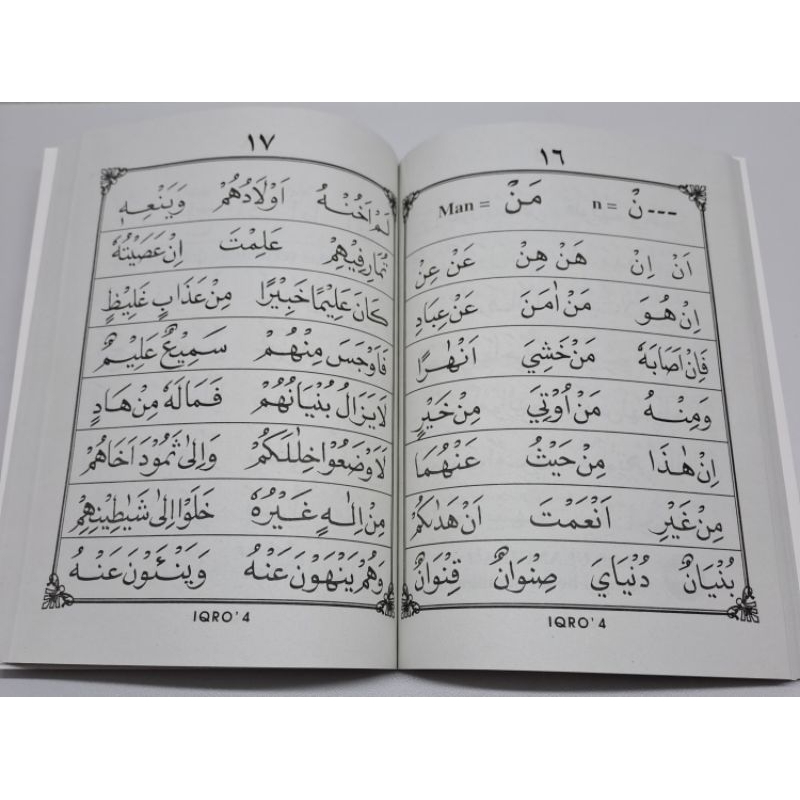 ١٦
---نْ = n مَنْ = Man
اَنْ اِنْ هَنْ هِنْ عَنْ عِنْ
اِنْ هُوَ مَنْ اٰمَنَ عَنْ عِبَادِ
فَاِنْ اَصَابَهٗ مَنْ خَشِيَ اَنْهٰرًا
وَمِنْهُ مَنْ اُوْتِيَ مِنْ خَيْرٍ
اِنْ هٰذَا مِنْ حَيْثُ عَنْهُمَا
مِنْ غَيْرِ اَنْعَمْتَ اَنْ هَدٰىكُمْ
بُنْيَانٌ دُنْيَايَ صِنْوَانٌ قِنْوَانٌ
IQRO'4
١٧
لَمْ اَخُنْهُ اَوْلَادُهُمْ وَيَنْعِهٖ
تُمَارِفِيْهِمْ عَلِمْتَ اِنْ عَصَيْتُهٗ
كَانَ عَلِيْمًا خَبِيْرًا مِنْ عَذَابٍ غَلِيْظٍ
فَاَوْجَسَ مِنْهُمْ سَمِيْعٌ عَلِيْمٌ
لَا يَزَالُ بُنْيَانُهُمْ فَمَا لَهٗ مِنْ هَادٍ
لَا وْضَعُوْا خِلٰلَكُمْ وَاِلٰى ثَمُوْدَ اَخَاهُمْ
مِنْ اِلٰهٍ غَيْرُهٗ خَلَوْا اِلٰى شَيٰطِيْنِهِمْ
وَهُمْ يَنْهَوْنَ عَنْهُ وَيَنْئَوْنَ عَنْهُ
IQRO'4